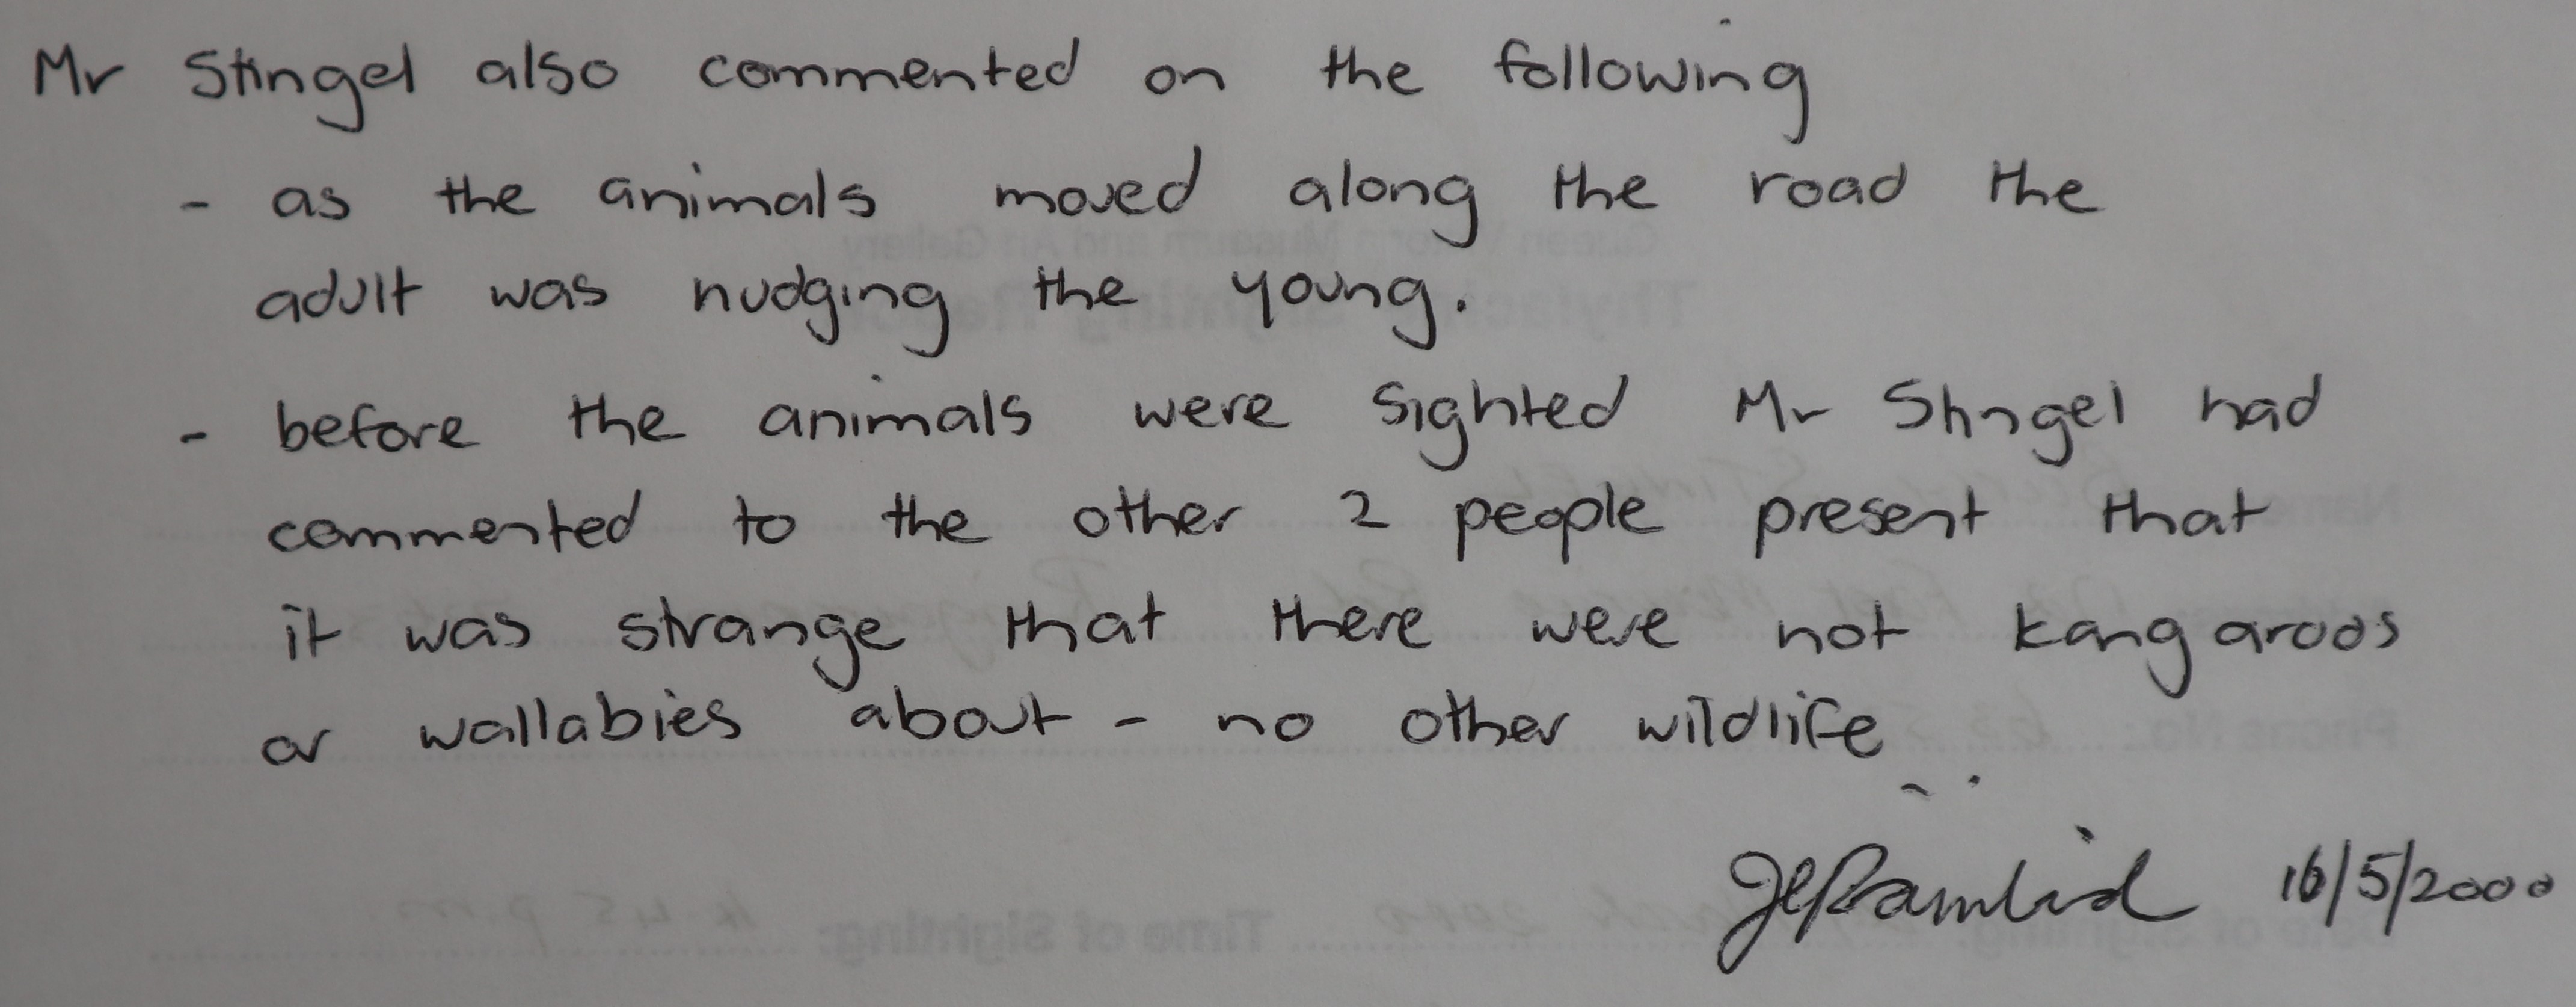 Mr Stingel also commented on the following
- as the animals moved along the road the
adult was nudging the young.
- before the animals were sighted Mr Stingel had
commented to the other 2 people present that
it was strange that there were not kangaroos
or wallabies about - no other wildlife
16/5/2000